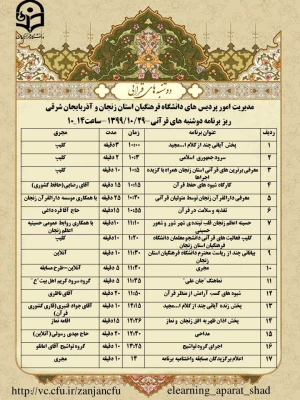 دوشنبه های قرآنی
مدیریت امور پردیس های دانشگاه فرهنگیان استان زنجان و آذربایجان شرقی
ریز برنامه دوشنبه های قرآنی -۱۳۹۹/۱۰/۲۹- ساعت ۱۴_۱۰
ردیف عنوان برنامه زمان مدت مجری
1 پخش آیاتی چند از کلام ا...مجید ۱۰:۰۰ ۳دقیقه کلیپ
2 سرود جمهوری اسلامی ۱۰:۰۳ ۲ دقیقه کلیپ
3 معرفی برترین های قرآنی استان زنجان همراه با گزیده اجراها ۱۰:۰۵ ۱۰دقیقه کلیپ
4 کارگاه شیوه های حفظ قرآن ۱۰:۱۵ ۱۵ دقیقه آقای رضایی(حافظ کشوری)
5 معرفی دارالقرآن زنجان توسط متولیان قرآنی ۱۰:۳۰ ۲۵ دقیقه با همکاری موسسه دارالقرآن زنجان
6 تغذیه و سلامت در قرآن ۱۰:۵۵ ۱۵دقیقه حاج آقا فرهادی
7 حسینیه اعظم زنجان قلب تپنده ی شهر شور و شعور حسینی ۱۱:۱۰ ۱۰دقیقه با همکاری روابط عمومی حسینیه اعظم زنجان
8 کلیپ فعالیت های قرآنی دانشجو معلمان دانشگاه فرهنگیان استان زنجان ۱۱:۲۰ ۱۰دقیقه کلیپ
9 بیاناتی چند از ریاست محترم دانشگاه فرهنگیان استان زنجان ۱۱:۳۰ دقیقه آنلاین
10 مجری ۵ دقیقه آنلاین-طرح مسابقه
11 نماهنگ "جان علی" ۵ دقیقه گروه سرود کریم اهل بیت"ع"
12 شیوه های کسب آرامش از منظر قرآن دقیقه آقای باقری
13 پخش زنده آیاتی چند از کلام ا...مجید ۱۲:۱۵ دقیقه آقای جواد قنبری(قاری کشوری قرآن)
14 پخش اذان ظهر به افق زنجان و نماز دقیقه اقامه نماز
15 مداحی دقیقه حاج مهدی رسولی(آنلاین)
16 اجرای گروه تواشیح دقیقه گروه تواشیح آقای امانلو
17 اعلام برگزیدگان مسابقه واختتامیه برنامه دقیقه مجری
http://vc.cfu.ir/zanjancfu elearning_aparat_shad